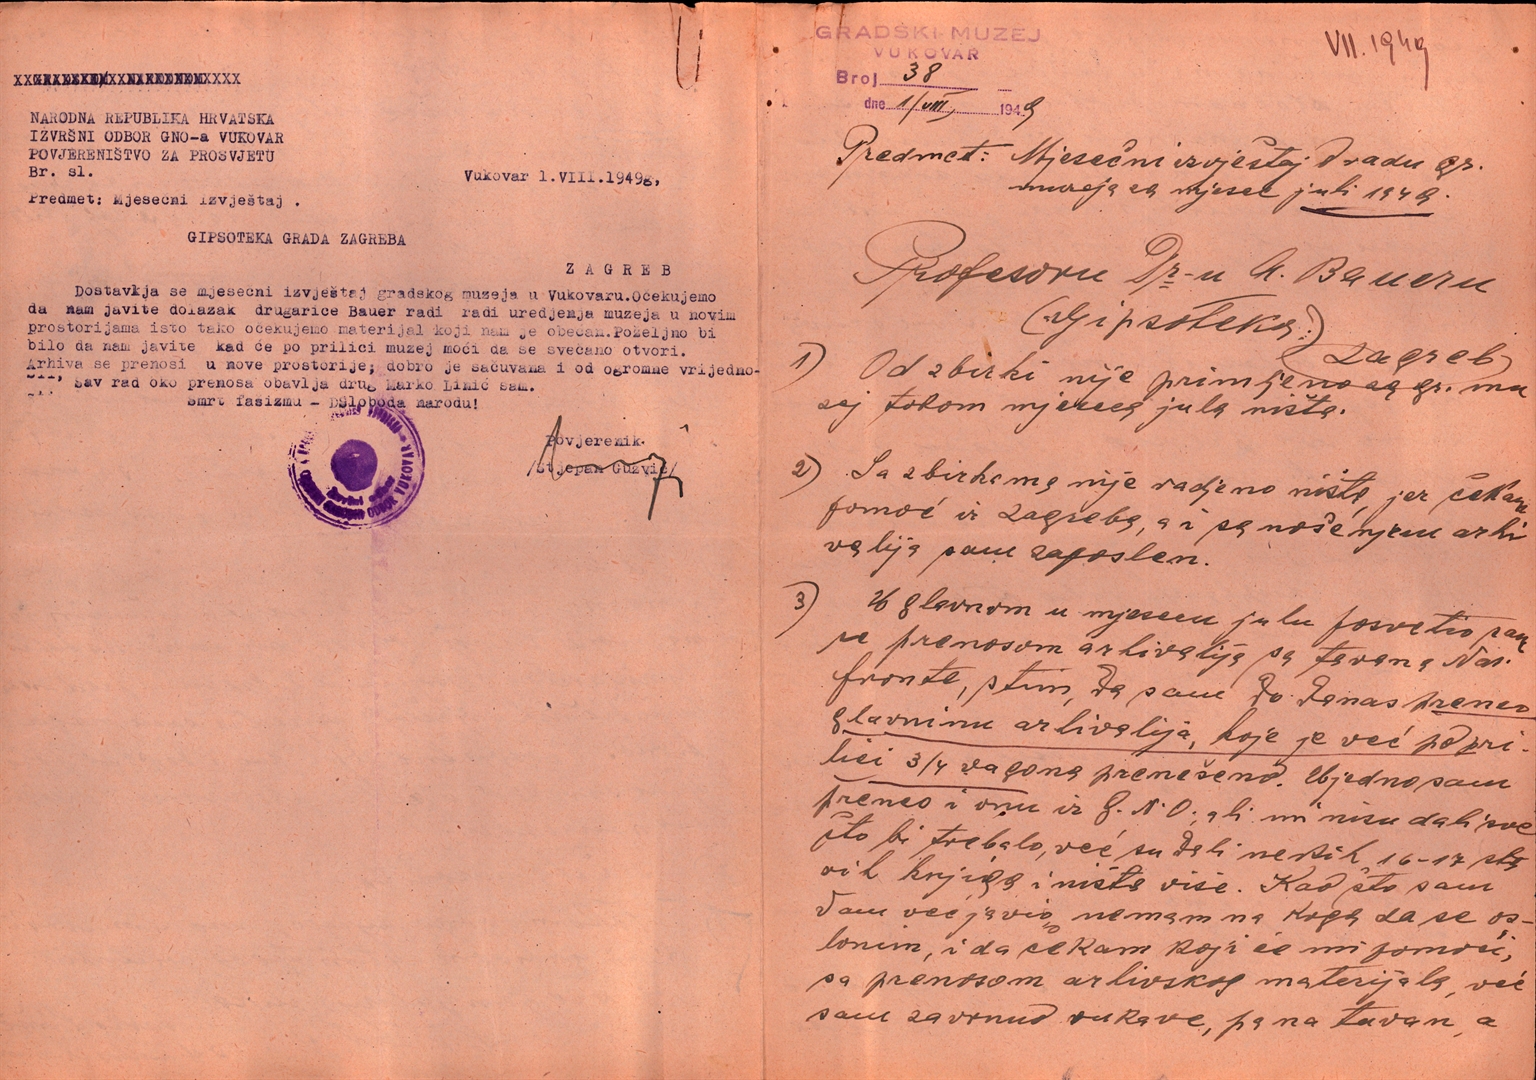 NARODNA REPUBLIKA HRVATSKA
IZVRŠNI ODBOR GNO-a VUKOVAR
POVJERENIŠTVO ZA PROSVJETU
Br. sl.
Vukovar 1.VIII.1949g,
Predmet; Mjesecni izvještaj .
GIPSOTEKA GRADA ZAGREBA
Z A G R E B
Dostavlja se mjesecni izvještaj gradskog muzeja u Vukovaru.Očekujemo
da nam javite dolazak drugarice Bauer radi radi uredjenja muzeja u novim
prostorijama isto tako očekujemo materijal koji nam je obećan.Poželjno bi
bilo da nam javite kad će po prilici muzej moći da se svečano otvori.
Arhiva se prenosi u nove prostorije; dobro je sačuvana i od ogromne vrijedno-
Sav rad oko prenosa obavlja drug Marko Linić sam.
Smrt fasizmu - Dsloboda narodu!
Povjerenik
Stjepan Guzvić
GRADSKI MUZEJ
VUKOVAR
Broj 38
dne 1/VIII, 1949
VII. 1949
Predmet: Mjesečni izvještaj o radu gr.
muzeja za mjesec juli 1949.
Profesoru Dr-u A. Baueru
(Gipsoteka)
Zagreb
1) Od zbirki nije primljeno za gr. mu
zej tokom mjeseca jula ništa.
2) Sa zbirkama nije radjeno ništa, jer čekam
pomoć iz Zagreba, a i sa nošenjem arhi
valija sam zaposlen.
3) U glavnom u mjesecu julu posvetio sam
se prenosom arhivalija sa tavana Nar.
fronte, s tim, da sam do danas preneo
glavninu arhivalija, koje je već po pri-
lici 3/4 vagona prenešeno. Ujedno sam
preneo i onu iz G.N.O. ali mi nisu dali sve
što bi trebalo, već su dali nekih 16-17 sta
rih knjiga i ništa više. Kao što sam
Vam već javio, nemam na koga da se os-
lonim, i da čekam koji će mi pomoći,
sa prenosom arhivskog materijala, već
sam zavrnuo rukave, pa na tavan, a